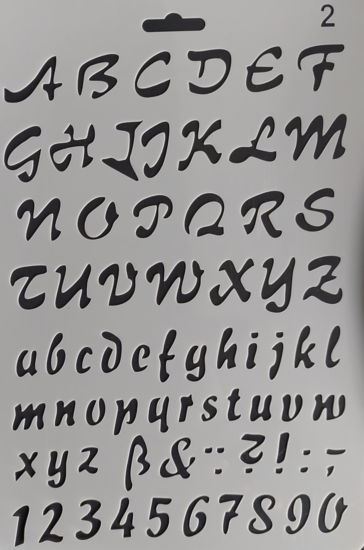 2
ABCDEF
GHIJKLM
NOPQRS
TUVWXYZ
abcdefghijkl
mnopqrstuvw
xyzß&:?!:-
1234567890